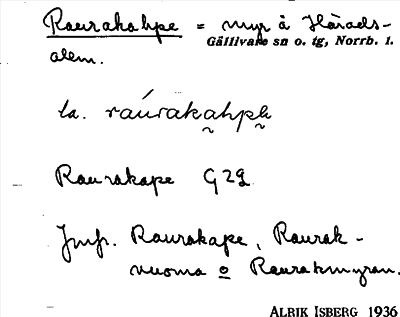 Raurakahpe = myr å Härads-
Gällivare sn o. tg, Norrb. l.
alem.
la. ráurakahpe
Raurakape G 29
Jmfr. Raurakape, Raurak-
vuoma o Raurakmyran.
ALRIK ISBERG 1936